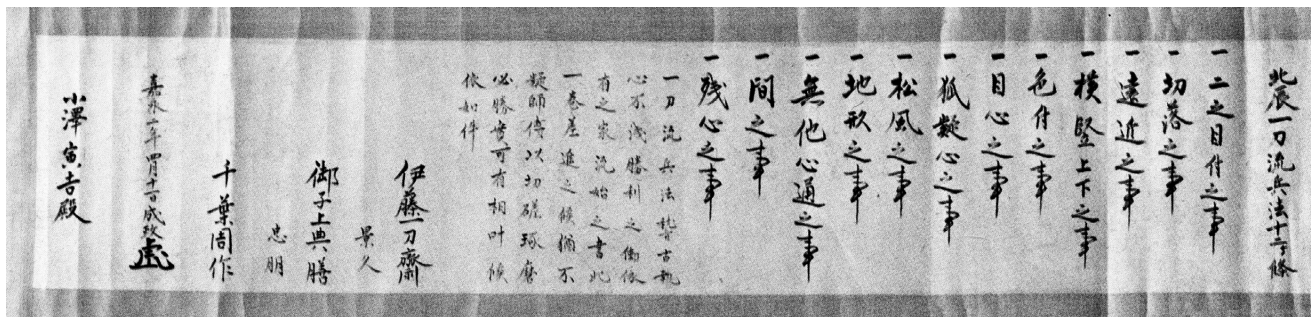 北辰一刀流兵法十二ケ條
一二之目付之事
一切落之事
一遠近之事
一横竪上下之事
一色付之事
一目心之事
一狐疑心之事
一松風之事
一地形之事
一無他心通之事
一間之事
一残心之事
一刀流兵法稽古執
心不浅勝利之働依
有之家流始之書此
一巻差進之候猶不
疑師傳以切磋琢磨
必勝実可有相叶候
依如件
伊藤一刀齋
景久
御子上典膳
忠明
千葉周作
成政
嘉永二年四月十一日
小澤寅吉殿